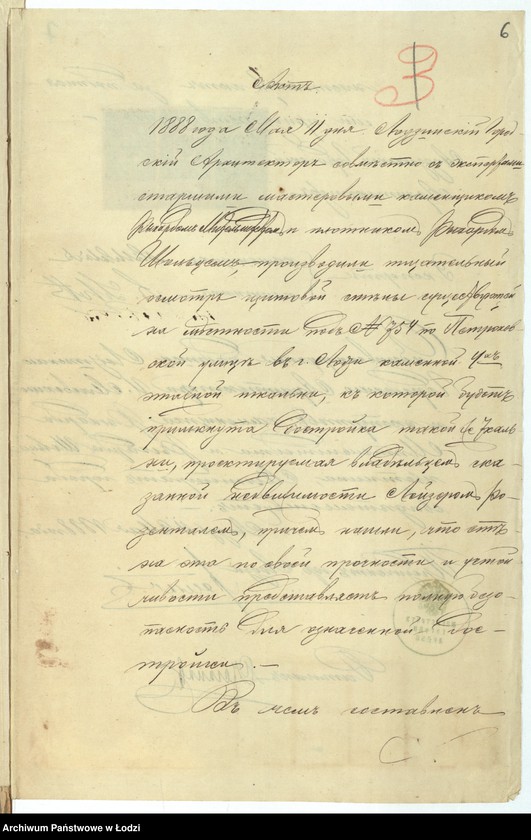 6
3
Актъ.
1888 года Мая 11 дня Лодзинскій Город-
скій Архитекторъ совмѣстно съ экспертами
старшими мастеровыми каменщикомъ
и плотникомъ Рихардомъ
производили тщательный
осмотръ щитовой стѣны существующей
на мѣстности подъ № 754 по Петроков-
ской улицѣ въ г. Лодзи каменной
этажной ткальни, къ которой будетъ
примкнута достройка такой же ткаль-
ни, проектируемая владѣльцемъ ска-
занной недвижимости Лойзеромъ Ро-
зенталемъ, причемъ нашли, что стѣ-
на эта по своей прочности и устой-
чивости представляетъ полную безо-
пасность для означенной дос-
тройки. —
Въ чемъ составленъ
Archiwum Państwowe w Łodzi